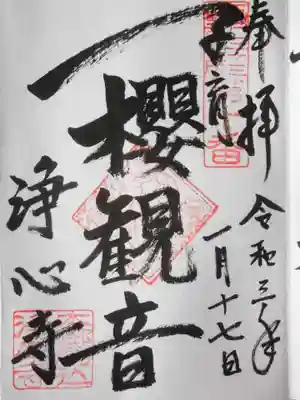 奉拝
令和三年
一月十七日
子育
櫻観音
浄心寺